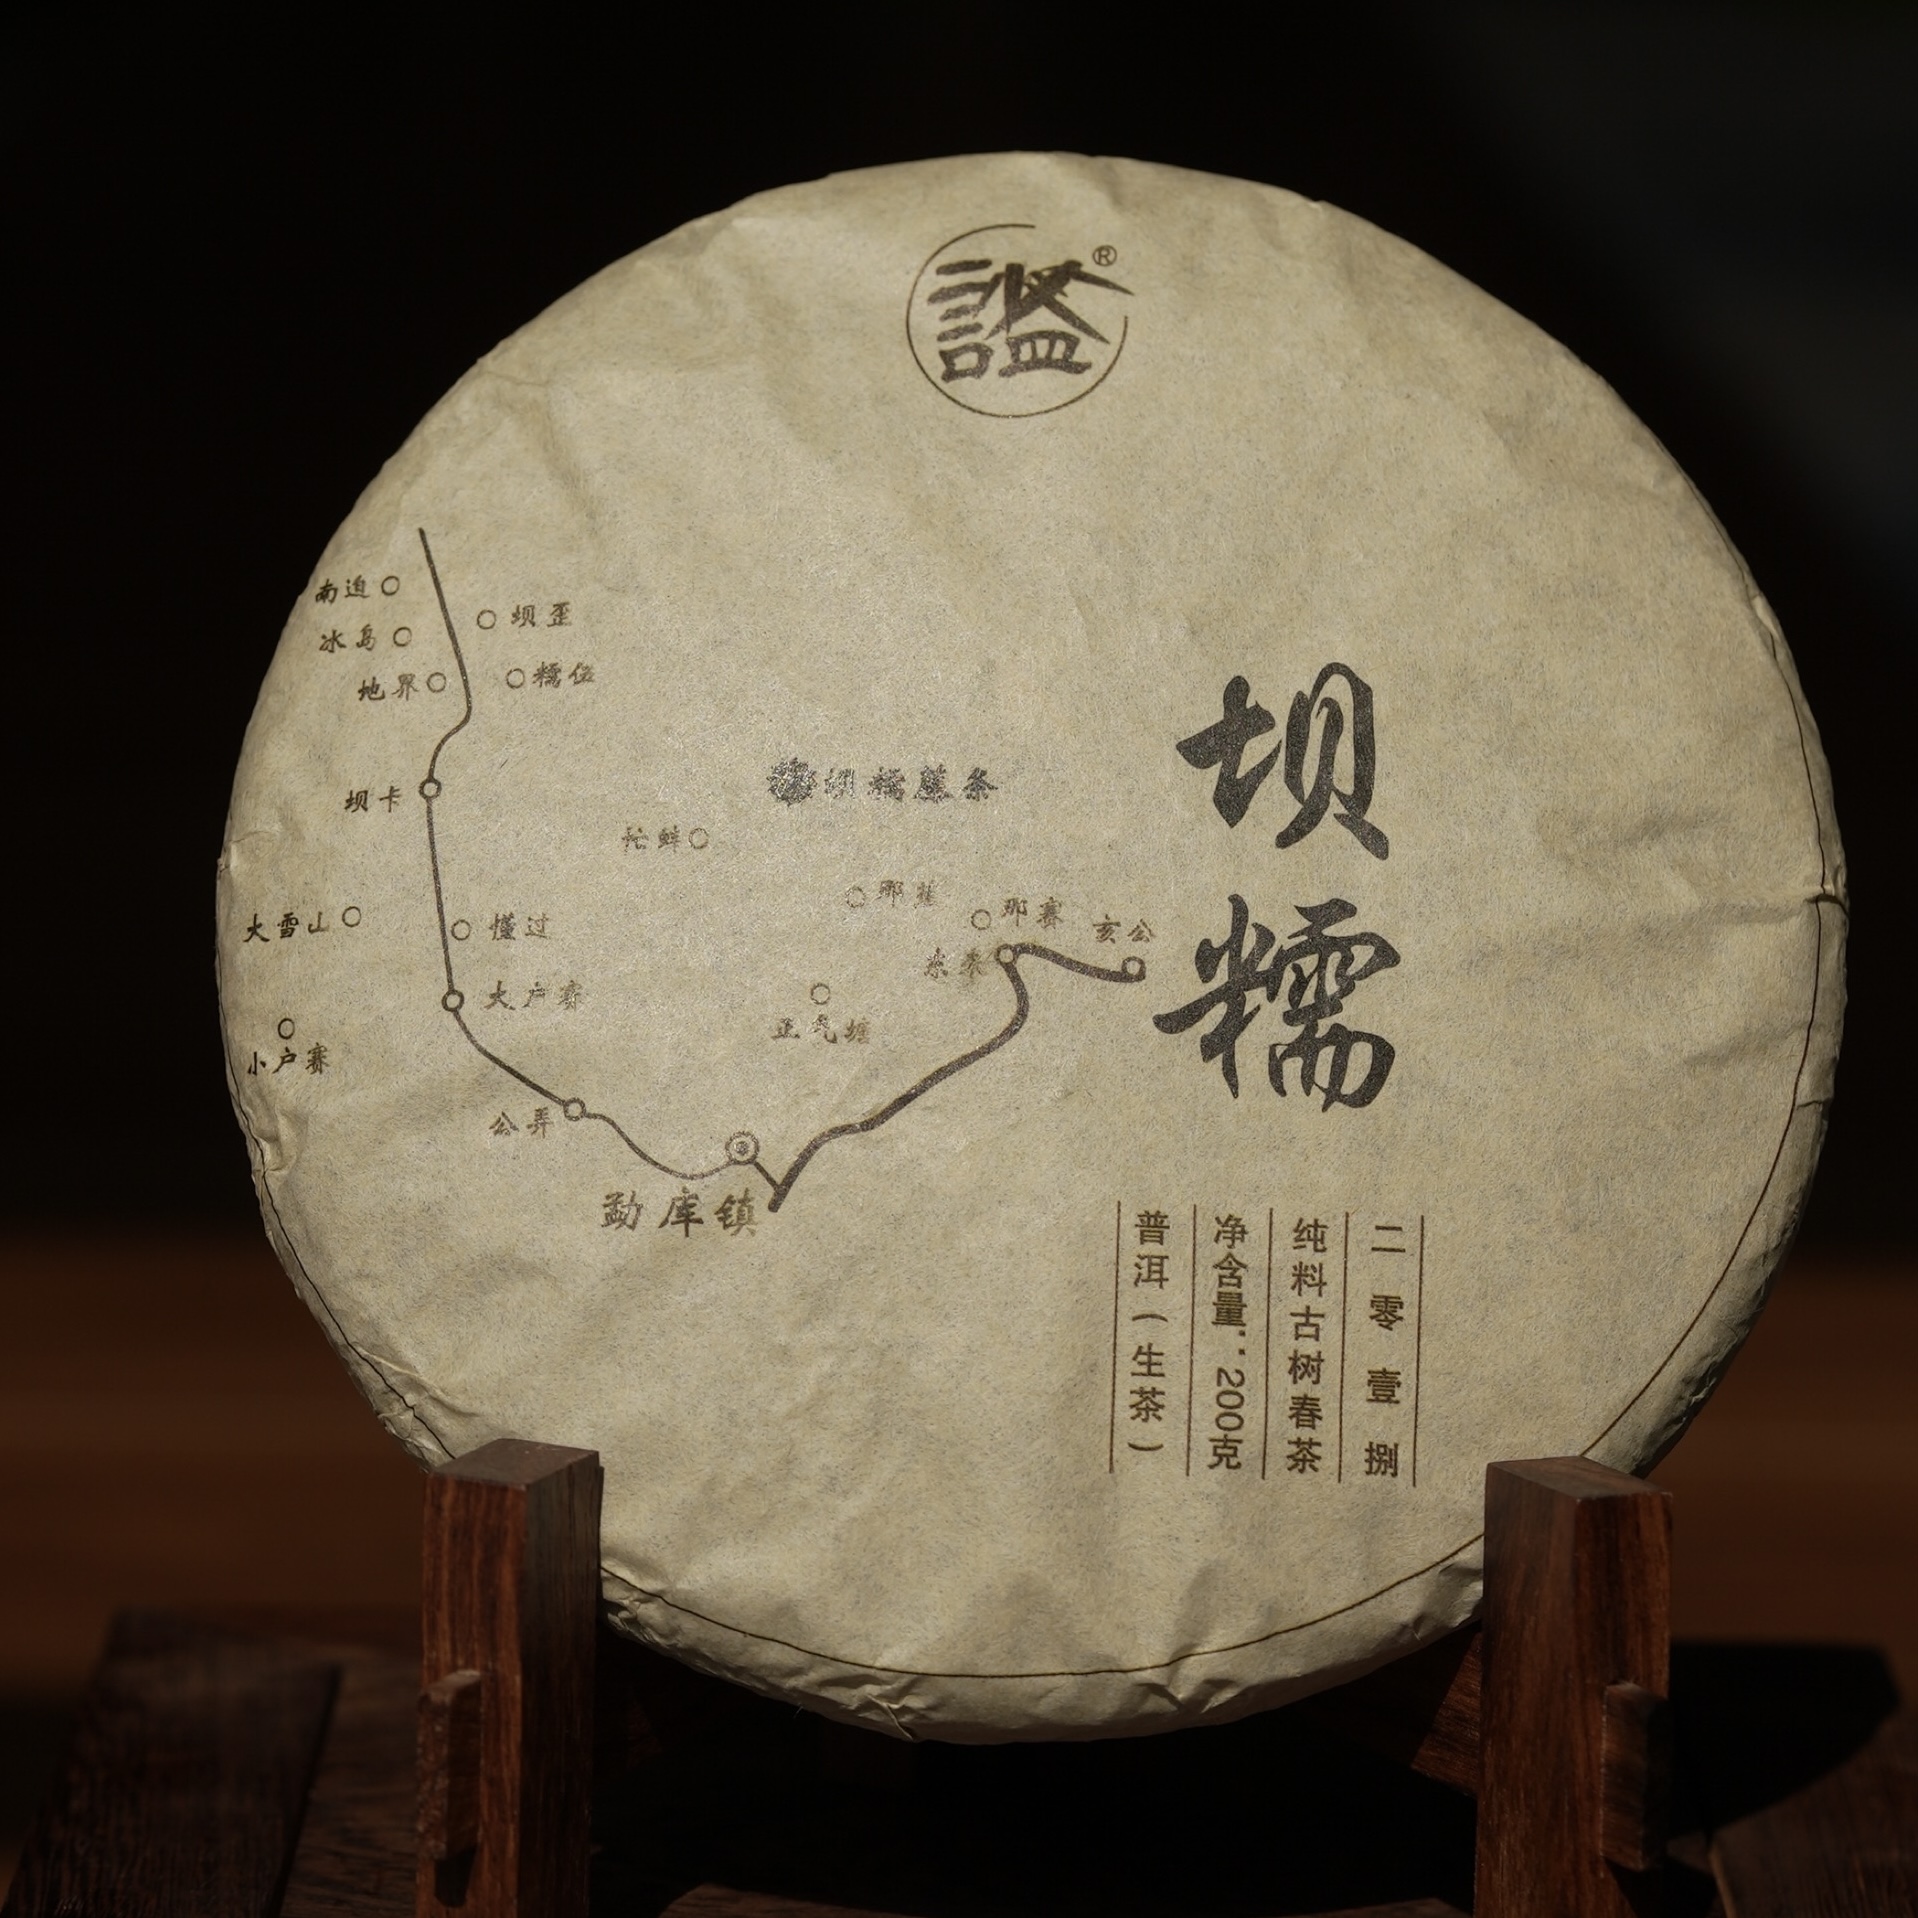 謐®
南迫
坝歪
冰岛
地界
糯伍
坝卡
坝糯藤条
忙蚌
那蕉
那赛
亥公
大雪山
懂过
东来
大户赛
正气塘
小户赛
公弄
勐库镇
坝糯
二零壹捌
纯料古树春茶
净含量:200克
普洱(生茶)